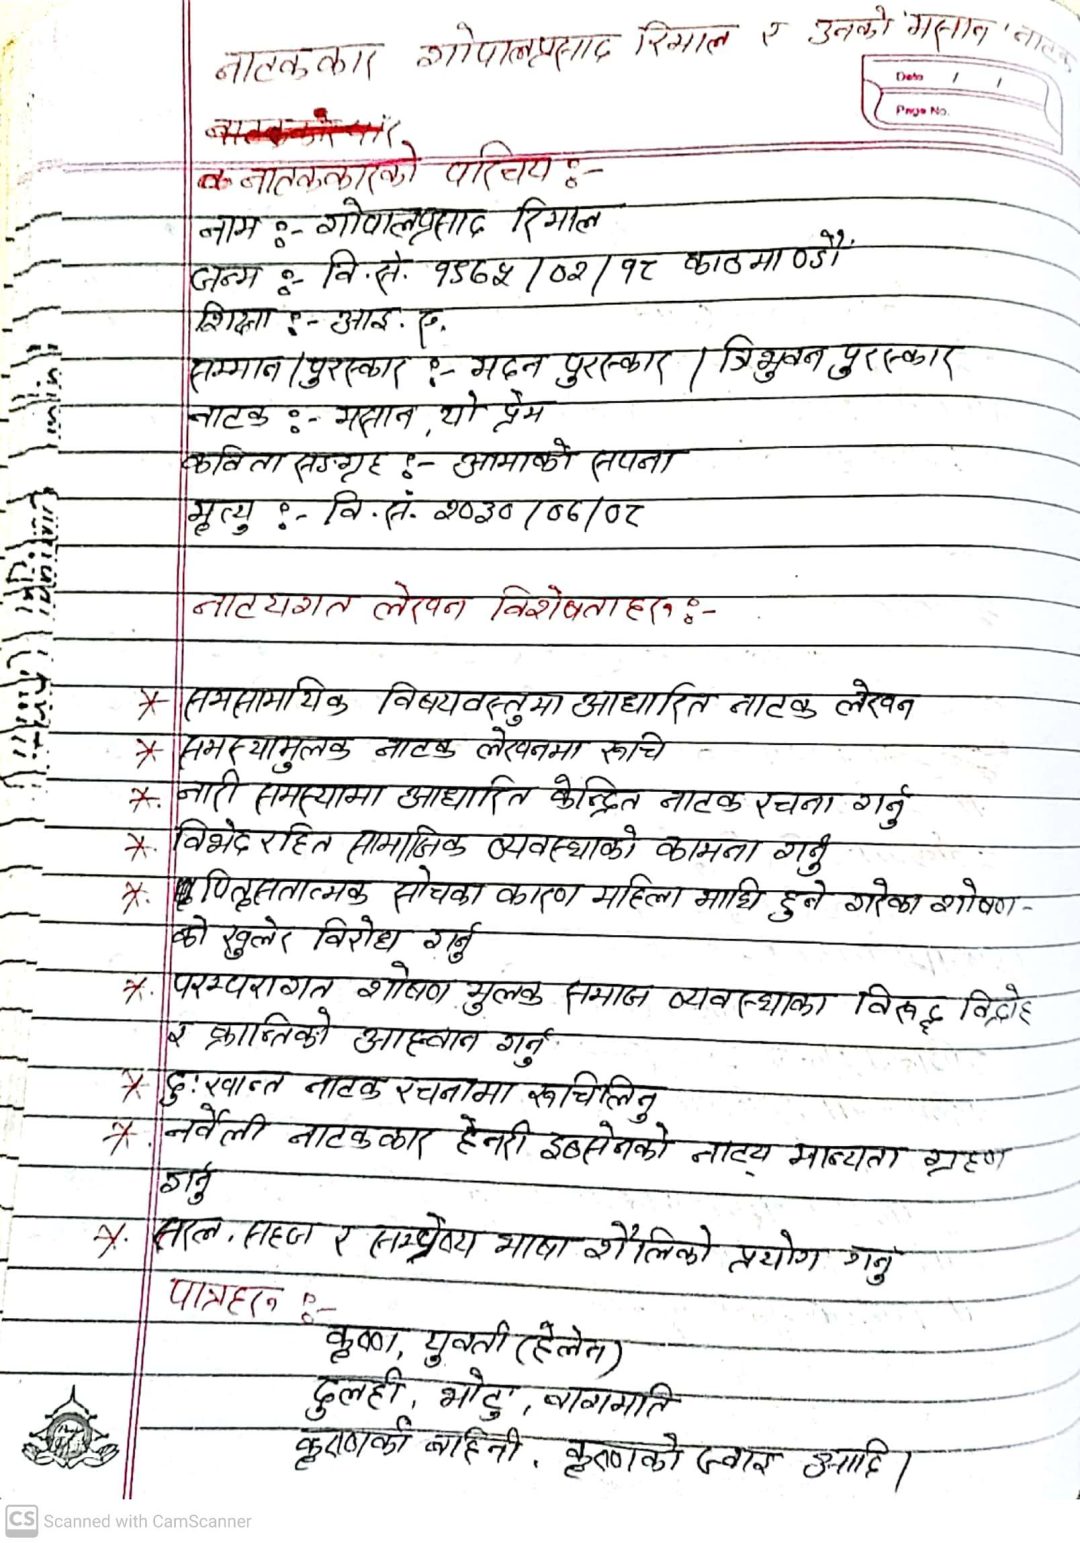 नाटककार गोपालप्रसाद रिमाल र उनको 'मसान' नाटक
Date / /
Page No.
नाटककारको परिचय :-
नाम :- गोपालप्रसाद रिमाल
जन्म :- वि.सं. १९७५/०२/१८ काठमाण्डौं
शिक्षा :- आइ.ए.
सम्मान/पुरस्कार :- मदन पुरस्कार / त्रिभुवन पुरस्कार
नाटक :- मसान, यो प्रेम
कविता सङग्रह :- आमाको सपना
मृत्यु :- वि.सं. २०३०/०६/०८
नाट्यगत लेखन विशेषताहरू :-
* समसामयिक विषयवस्तुमा आधारित नाटक लेखन
* समस्यामुलक नाटक लेखनमा रूचि
* नारी समस्यामा आधारित केन्द्रित नाटक रचना गर्नु
* विभेद रहित सामाजिक व्यवस्थाको कामना गर्नु
* पितृसतात्मक सोचका कारण महिला माथि हुने गरेका शोषण-
को खुलेर विरोध गर्नु
* परम्परागत शोषण मुलक समाज व्यवस्थाका विरूद्ध विद्रोह
र क्रान्तिको आह्वान गर्नु
* दुःखान्त नाटक रचनामा रूचिलिनु
* नर्वेली नाटककार हेनरी इब्सेनको नाट्य मान्यता ग्रहण
गर्नु
* सरल, सहज र सम्प्रेष्य भाषा शैलिको प्रयोग गर्नु
पात्रहरू :-
कृष्ण, युवती (हेलेन)
दुलही, भोटु, वागमति
कृष्णकी बहिनी, कृष्णको ज्वाइ आदि।
CS Scanned with CamScanner